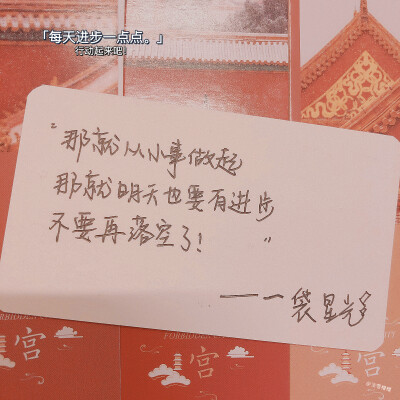 「每天进步一点点。」
行动起来吧!
“那就从小事做起
那就明天也要有进步
不要再落空了! ”
——一袋星光
FORBIDDEN
宫
宫